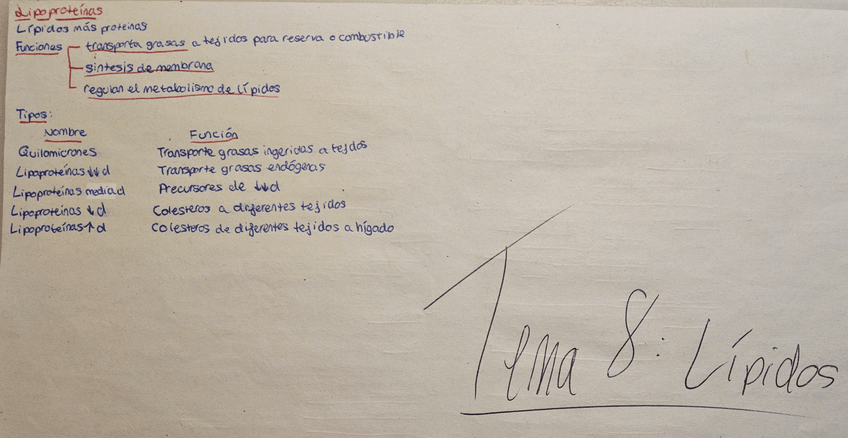 Lipoproteínas
Lípidos más proteinas
Funciones transporta grasas a tejidos para reserva o combustible
síntesis de membrana
regulan el metabolismo de lípidos
Tipos:
Nombre Función
Quilomicrones Transporte grasas ingeridas a tejdos
Lipoproteínas ↓↓ d Transporte grasas endógenas
Lipoproteínas media d Precursores de ↓↓ d
Lipoproteínas ↓ d Colesteros a diferentes tejidos
Lipoproteínas ↑ d Colesteros de diferentes tejidos a hígado
Tema 8: Lípidos